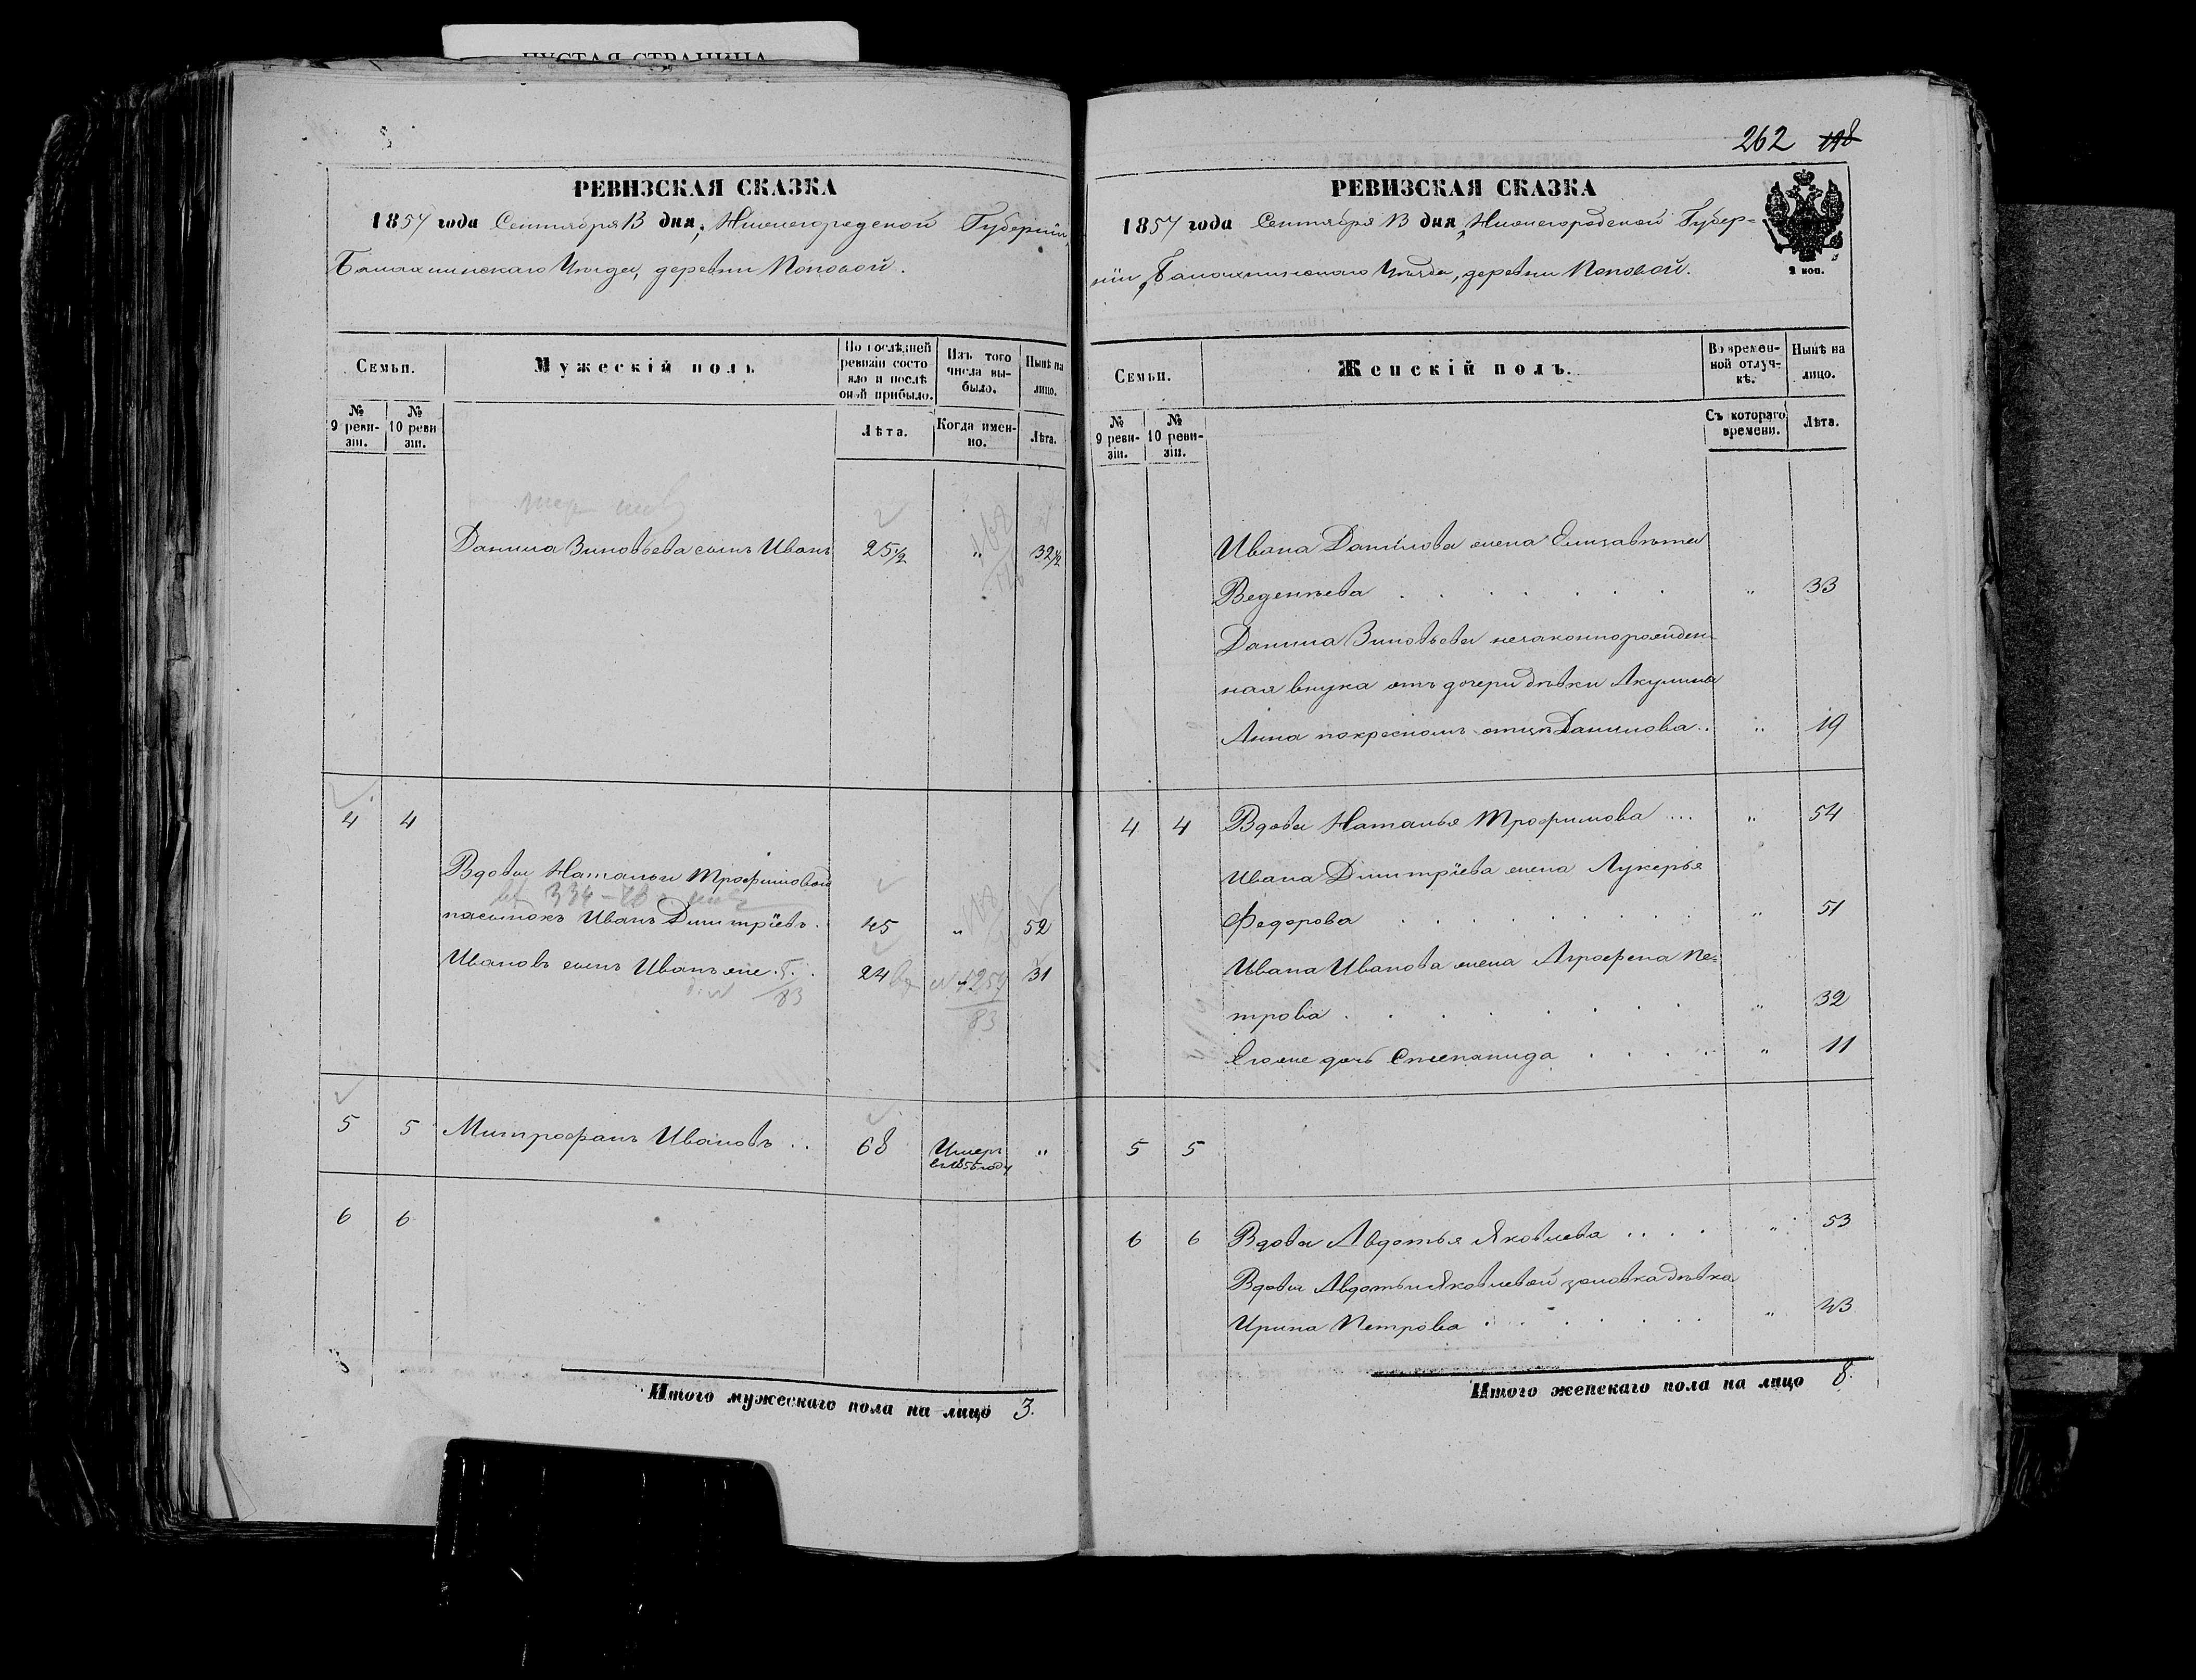 ПУСТАЯ СТРАНИЦА
РЕВИЗСКАЯ СКАЗКА
1857 года Сентября 13 дня, Нижегородской Губерніи,
Балахнинскаго Уѣзда, деревни Поповой.
Семьи.
Мужескій полъ
По послѣдней ревизіи состояло и послѣ оной прибыло.
Изъ того числа выбыло.
Нынѣ на лицо.
№ 9 ревизіи.
№ 10 ревизіи.
Лѣта.
Когда именно.
Лѣта.
Данила Зиновьева сынъ Иванъ 25½ " 32½
4 4
Вдовы Натальи Трофимовой
пасынокъ Иванъ Дмитріевъ. 45 " 52
Ивановъ сынъ Иванъ же 24 " 31
83
83
5 5 Митрофанъ Ивановъ .. 68 Умеръ "
6 6
Итого мужескаго пола на лицо 3.
262 198
РЕВИЗСКАЯ СКАЗКА
1857 года Сентября 13 дня, Нижегородской Губер-
ніи, Балахнинскаго Уѣзда, деревни Поповой.
2 коп.
Семьи.
Женскій полъ.
Во временной отлучкѣ.
Нынѣ на лицо.
№ 9 ревизіи.
№ 10 ревизіи.
Съ котораго времени.
Лѣта.
Ивана Данилова жена Елизавѣта
Веденѣева . . . . . . " 33
Данила Зиновьева незаконнорожден-
ная внука отъ дочери дѣвки Акулины
Анна по кресномъ отцѣ Данилова .. " 19
4 4 Вдова Наталья Трофимова .... " 54
Ивана Димитріева жена Лукерья
Федорова . . . . . . . . " 51
Ивана Иванова жена Аграфена Пе-
трова . . . . . . . " 32
Его же дочь Степанида . . . . " 11
5 5
6 6 Вдова Авдотья Яковлева . . . . " 53
Вдовы Авдотьи Яковлевой золовка дѣвка
Ирина Петрова . . . . . . " 43
Итого женскаго пола на лицо 8.